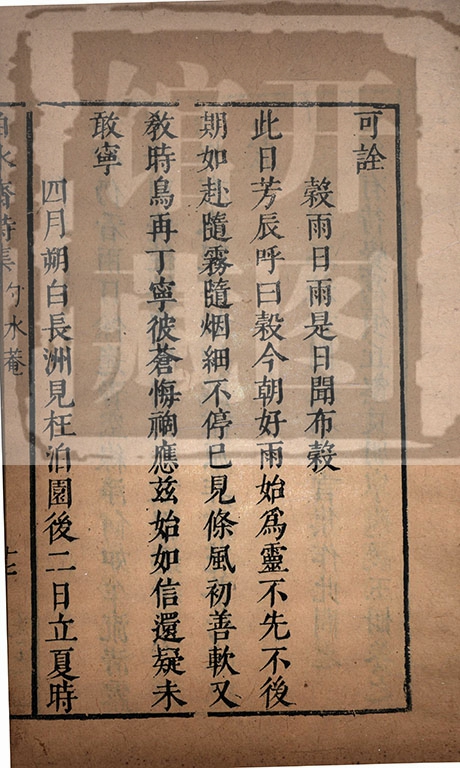 可詮
穀雨日雨是日聞布穀
此日芳辰呼曰穀今朝好雨始為靈不先不後
期如赴隨霧隨烟細不停已見條風初善軟又
教時鳥再丁寧彼蒼悔禍應茲始如信還疑未
敢寧
四月朔白長洲見枉泊園後二日立夏時
白水齋詩集
竹水菴
十七
开图馆藏